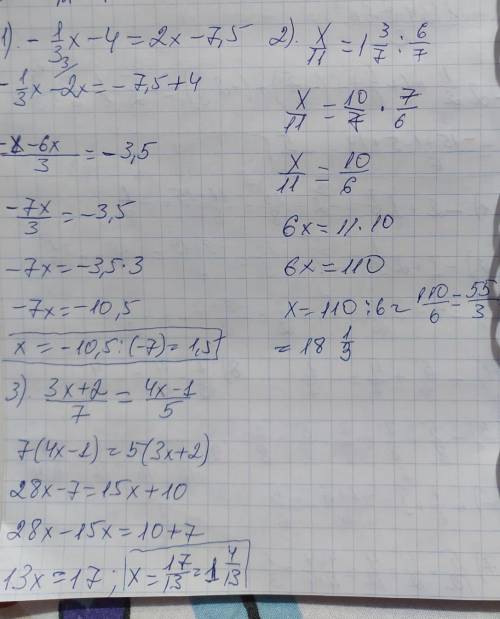 1). -1/3x - 4 = 2x - 7,5
-1/3x - 2x = -7,5 + 4
(-x - 6x)/3 = -3,5
-7x/3 = -3,5
-7x = -3,5 · 3
-7x = -10,5
x = -10,5 : (-7) = 1,5
2). x/11 = 1 3/7 : 6/7
x/11 = 10/7 · 7/6
x/11 = 10/6
6x = 11 · 10
6x = 110
x = 110 : 6 = 110/6 = 55/3
= 18 1/3
3). (3x+2)/7 = (4x-1)/5
7(4x-1) = 5(3x+2)
28x - 7 = 15x + 10
28x - 15x = 10 + 7
13x = 17; x = 17/13 = 1 4/13